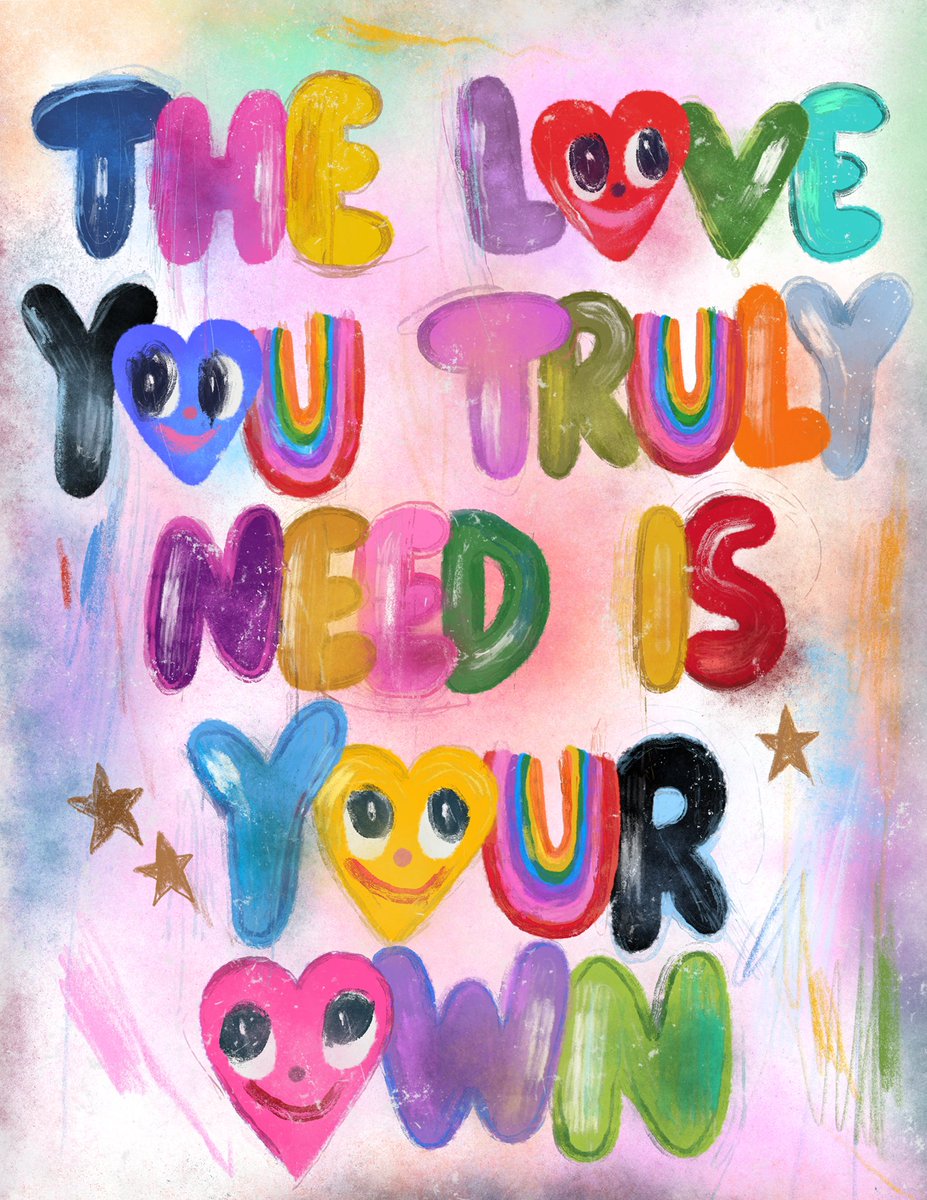 THE LOVE
YOU TRULY
NEED IS
YOUR
OWN